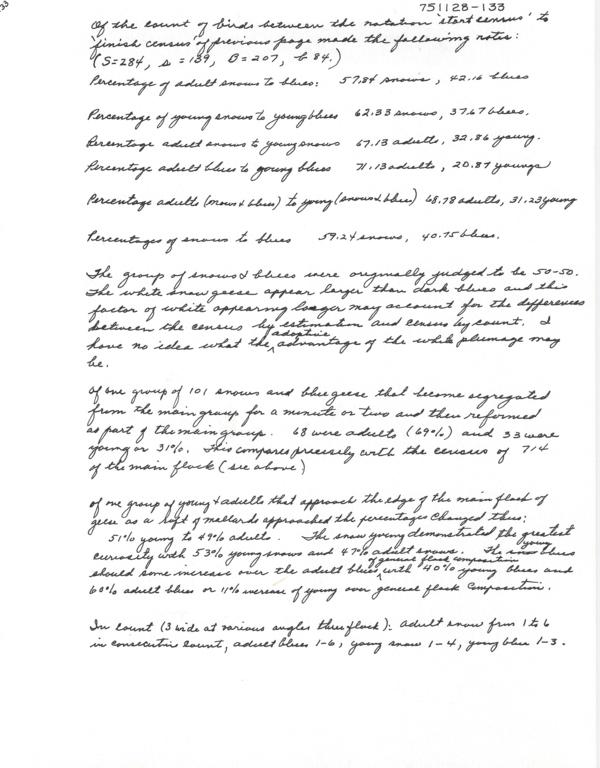 751128-133
Of the count of birds between the notation 'start census' to
'finish census' of previous page made the following notes:
(S=284, s=139, B=207, b 84.)
Percentage of adult snows to blues: 57.84 snows, 42.16 blues
Percentage of young snows to young blues 62.33 snows, 37.67 blues.
Percentage adult snows to young snows 67.13 adults, 32.86 young.
Percentage adult blues to young blues 71.13 adults, 28.87 youngs
Percentage adults (snows & blues) to young (snows & blues) 68.78 adults, 31.23 young
Percentages of snows to blues 59.24 snows, 40.75 blues.
The group of snows & blues were originally judged to be 50-50.
The white snow geese appear larger than dark blues and this
factor of white appearing larger may account for the differences
between the census by estimation and census by count. I
have no idea what the adaptive advantage of the white plumage may
be.
Of one group of 101 snows and blue geese that become segregated
from the main group for a minute or two and then reformed
as part of the main group. 68 were adults (69%) and 33 were
young or 31%. This compares precisely with the census of 714
of the main flock (see above)
Of one group of young & adults that approach the edge of the main flock of
geese as a raft of mallards approached the percentages changed thus:
51% young to 49% adults. The snow young demonstrated the greatest
curiosity with 53% young snows and 47% adult snows. The young blues
should some increase over the adult blues of general flock composition with 40% young blues and
60% adult blues or 11% increase of young over general flock composition.
In count (3 wide at various angles thru flock): adult snow from 1 to 6
in consecutive count, adult blues 1-6, young snow 1-4, young blue 1-3.